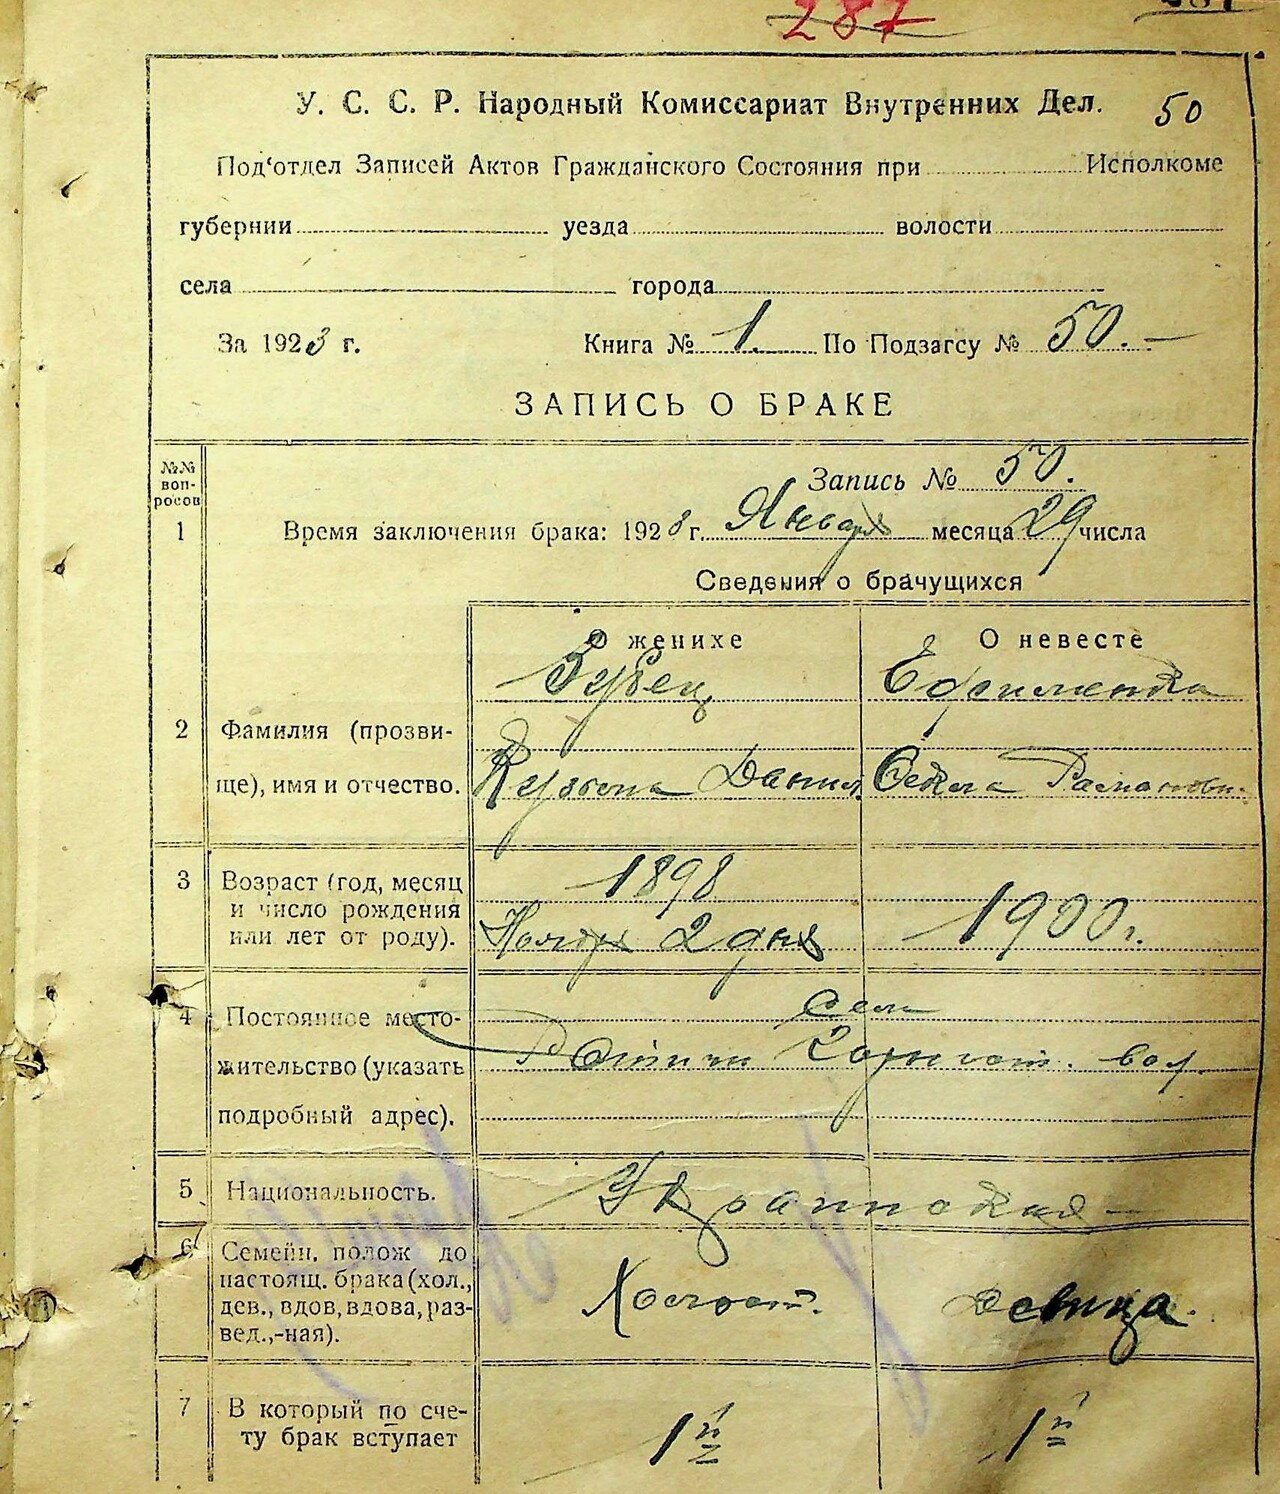 287
У. С. С. Р. Народный Комиссариат Внутренних Дел. 50
Под‘отдел Записей Актов Гражданского Состояния при Исполкоме
губернии уезда волости
села города
За 1923 г. Книга № 1. По Подзагсу № 50.
ЗАПИСЬ О БРАКЕ
№№ вопросов
Запись № 50.
1 Время заключения брака: 1923 г. Января месяца 29 числа
Сведения о брачущихся
О женихе О невесте
Зубец Ефименкова
2 Фамилия (прозви-
ще), имя и отчество. Кузьма Данил. Фекла Романовн.
3 Возраст (год, месяц 1898
и число рождения 1900 г.
или лет от роду). Ноября 2 дня
Села
4 Постоянное место-
жительство (указать вол.
подробный адрес).
5 Национальность. Украинская
6 Семейн. полож до
настоящ. брака (хол.,
дев., вдов, вдова, раз- Холост. Девица.
вед.,-ная).
7 В который по сче- 1й 1й
ту брак вступает